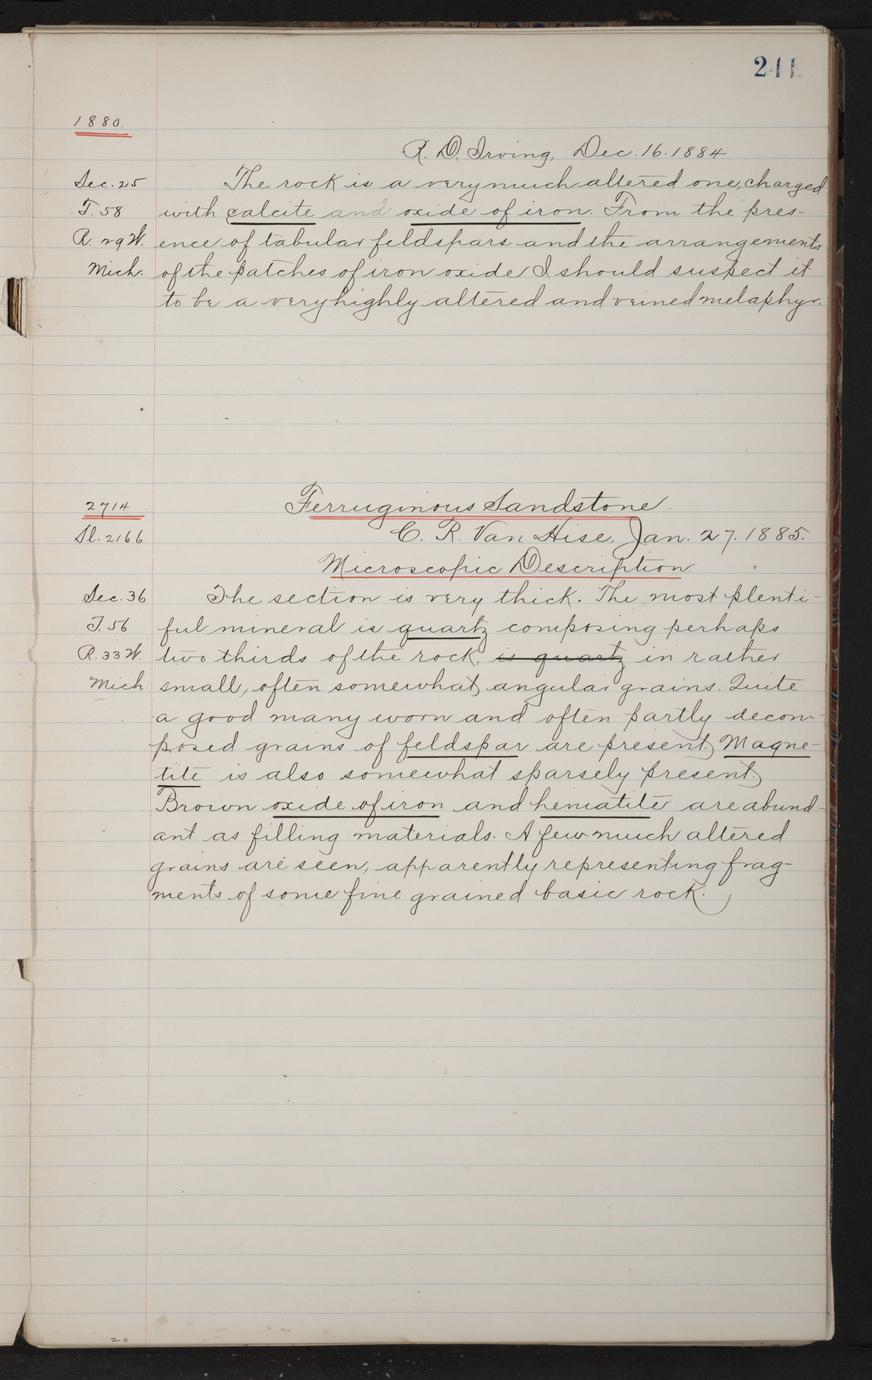 241
1880.
R. D. Irving, Dec. 16. 1884
Sec. 25 The rock is a very much altered one, charged
T. 58 with calcite and oxide of iron. From the pres-
R. 29 W. ence of tabular feldspars and the arrangements
Mich. of the patches of iron oxide I should suspect it
to be a very highly altered and veined melaphyr.
2714 Ferruginous Sandstone.
Sl. 2166 C. R. Van Hise, Jan. 27. 1885.
Microscopic Description.
Sec. 36 The section is very thick. The most plenti-
T. 56 ful mineral is quartz composing perhaps
R. 33 W. two thirds of the rock, is quartz in rather
Mich small, often somewhat angular grains. Quite
a good many worn and often partly decom-
posed grains of feldspar are present. Magne-
tite is also somewhat sparsely present.
Brown oxide of iron and hematite are abund-
ant as filling materials. A few much altered
grains are seen, apparently representing frag-
ments of some fine grained basic rock.